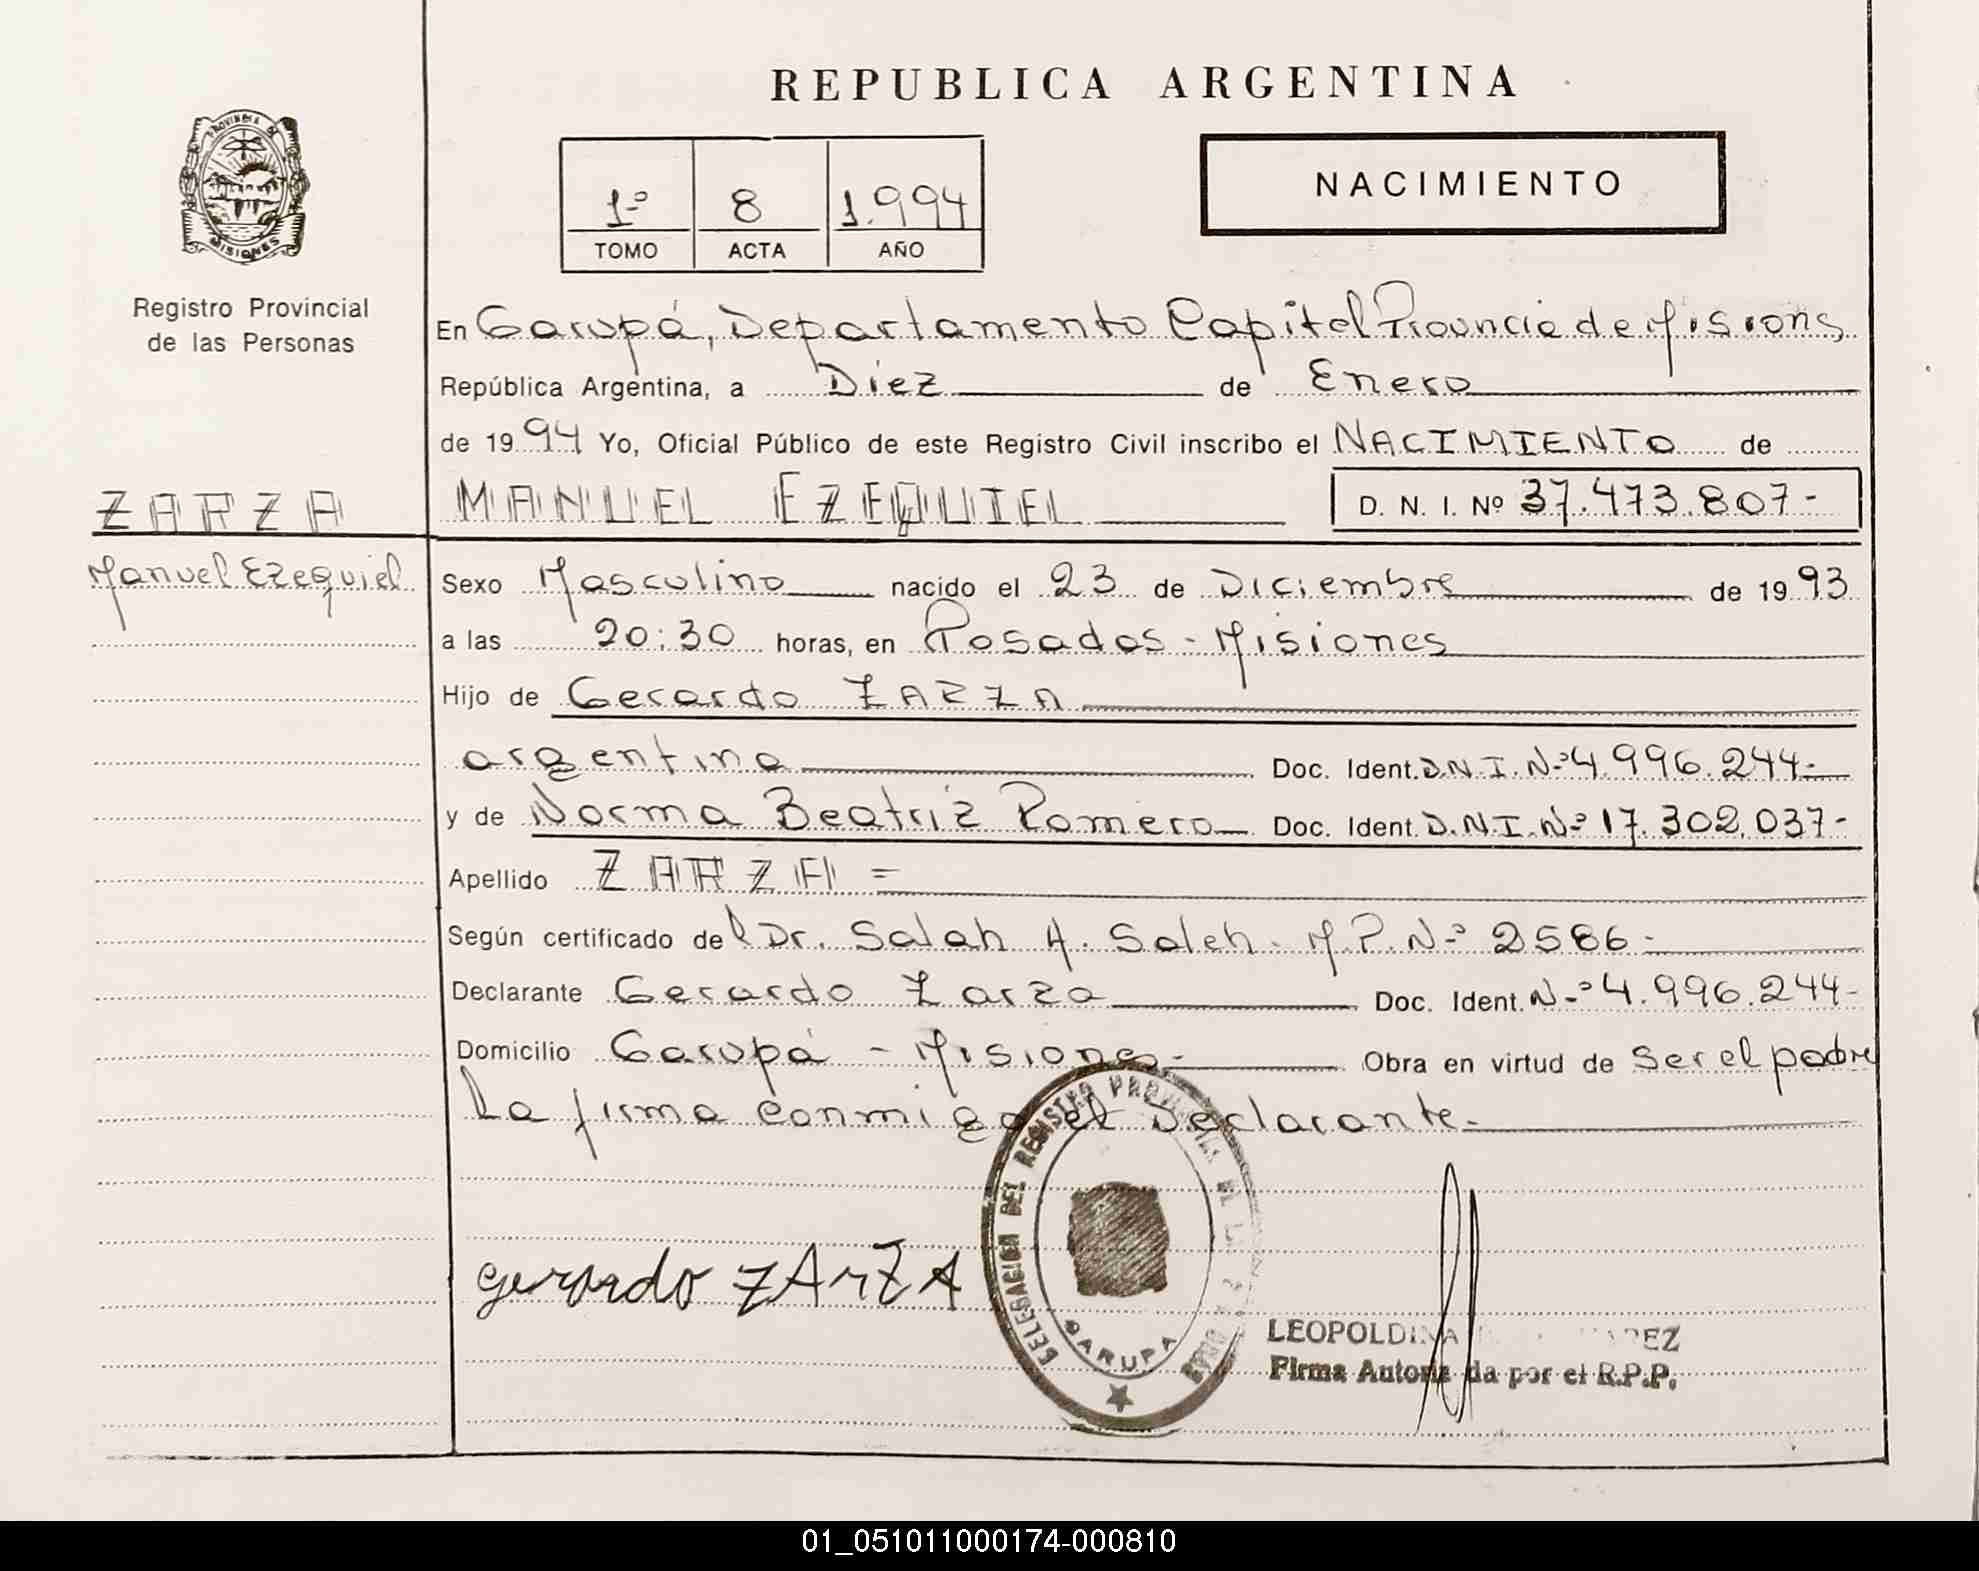 REPUBLICA ARGENTINA
PROVINCIA DE
MISIONES
Registro Provincial
de las Personas
1º 8 1.994
TOMO ACTA AÑO
NACIMIENTO
En Garupá, Departamento Capital Provincia de Misions
República Argentina, a Diez de Enero
de 1994 Yo, Oficial Público de este Registro Civil inscribo el NACIMIENTO de
ZARZA
MANUEL EZEQUIEL D. N. I. Nº 37.473.807-
Manuel Ezequiel
Sexo Masculino nacido el 23 de Diciembre de 1993
a las 20:30 horas, en Posadas - Misiones
Hijo de Gerardo ZARZA
argentina Doc. Ident. D.N.I.Nº 4.996.244-
y de Norma Beatriz Romero Doc. Ident. D.N.I.Nº 17.302.037-
Apellido ZARZA =
Según certificado del Dr. Salah A. Saleh. M.P.Nº 2586-
Declarante Gerardo Zarza Doc. Ident. Nº 4.996.244-
Domicilio Garupá - Misiones- Obra en virtud de Ser el padre
La firma conmigo el Declarante.
DELEGACION DEL REGISTRO
GARUPA
gerardo ZArZA
LEOPOLDINA
Firma Autorizada por el R.P.P.
01_051011000174-000810